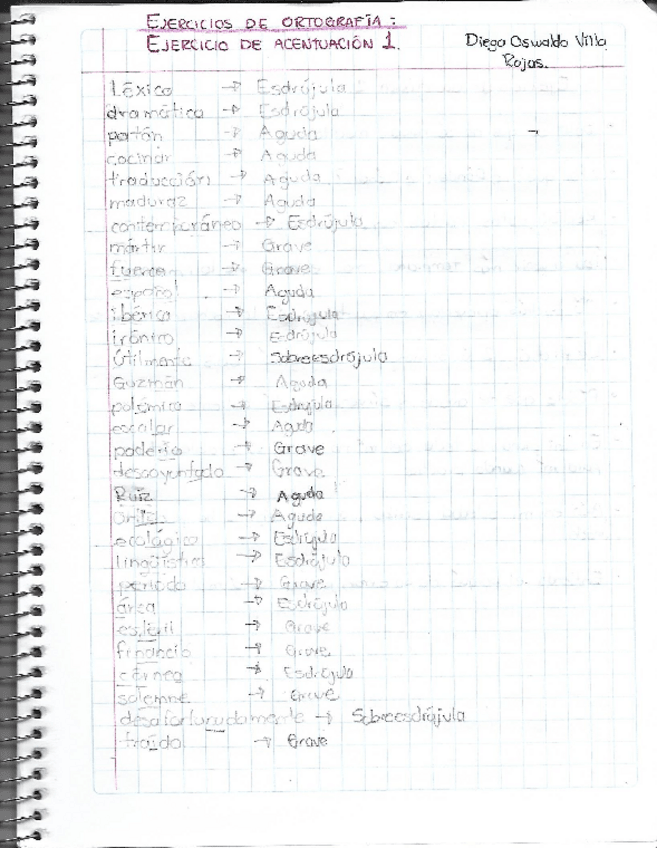 EJERCICIOS DE ORTOGRAFÍA:
EJERCICIO DE ACENTUACIÓN 1.
Diego Oswaldo Villa
Rojas.
Léxico → Esdrújula
dramático → Esdrújula
portón → Aguda
cocinar → Aguda
traducción → Aguda
madurez → Aguda
contemporáneo → Esdrújula
mártir → Grave
fuerza → Grave
español → Aguda
ibérica → Esdrújula
irónico → Esdrújula
Útilmente → Sobreesdrújula
Guzmán → Aguda
polémica → Esdrújula
escolar → Aguda
poderío → Grave
descoyuntado → Grave
Ruiz → Aguda
→ Aguda
ecológico → Esdrújula
lingüística → Esdrújula
período → Grave
área → Esdrújula
→ Grave
financio → Grave
córnea → Esdrújula
solemne → Grave
desafortunadamente → Sobreesdrújula
traído → Grave